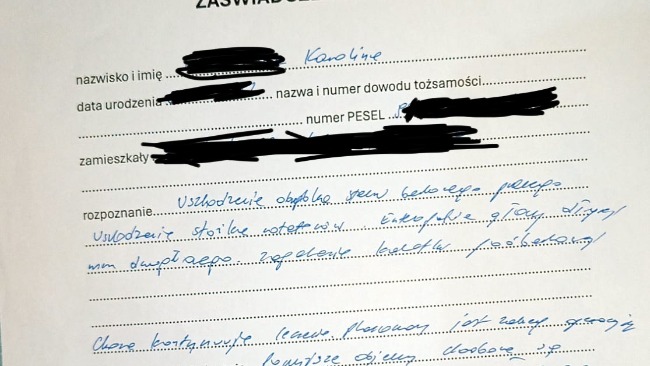 ZAŚWIADCZE
nazwisko i imię Karolina
data urodzenia nazwa i numer dowodu tożsamości
numer PESEL
zamieszkały
rozpoznanie Uszkodzenie obrąbka stawu barkowego prawego
Uszkodzenie stożka rotatorów Entezopatia głowy długiej
mm dwugłowego. Zapalenie kaletki podbarkowej
Chora kontynuuje leczenie, planowany jest zabieg operacyjny
Powyższe objawy chorobowe się